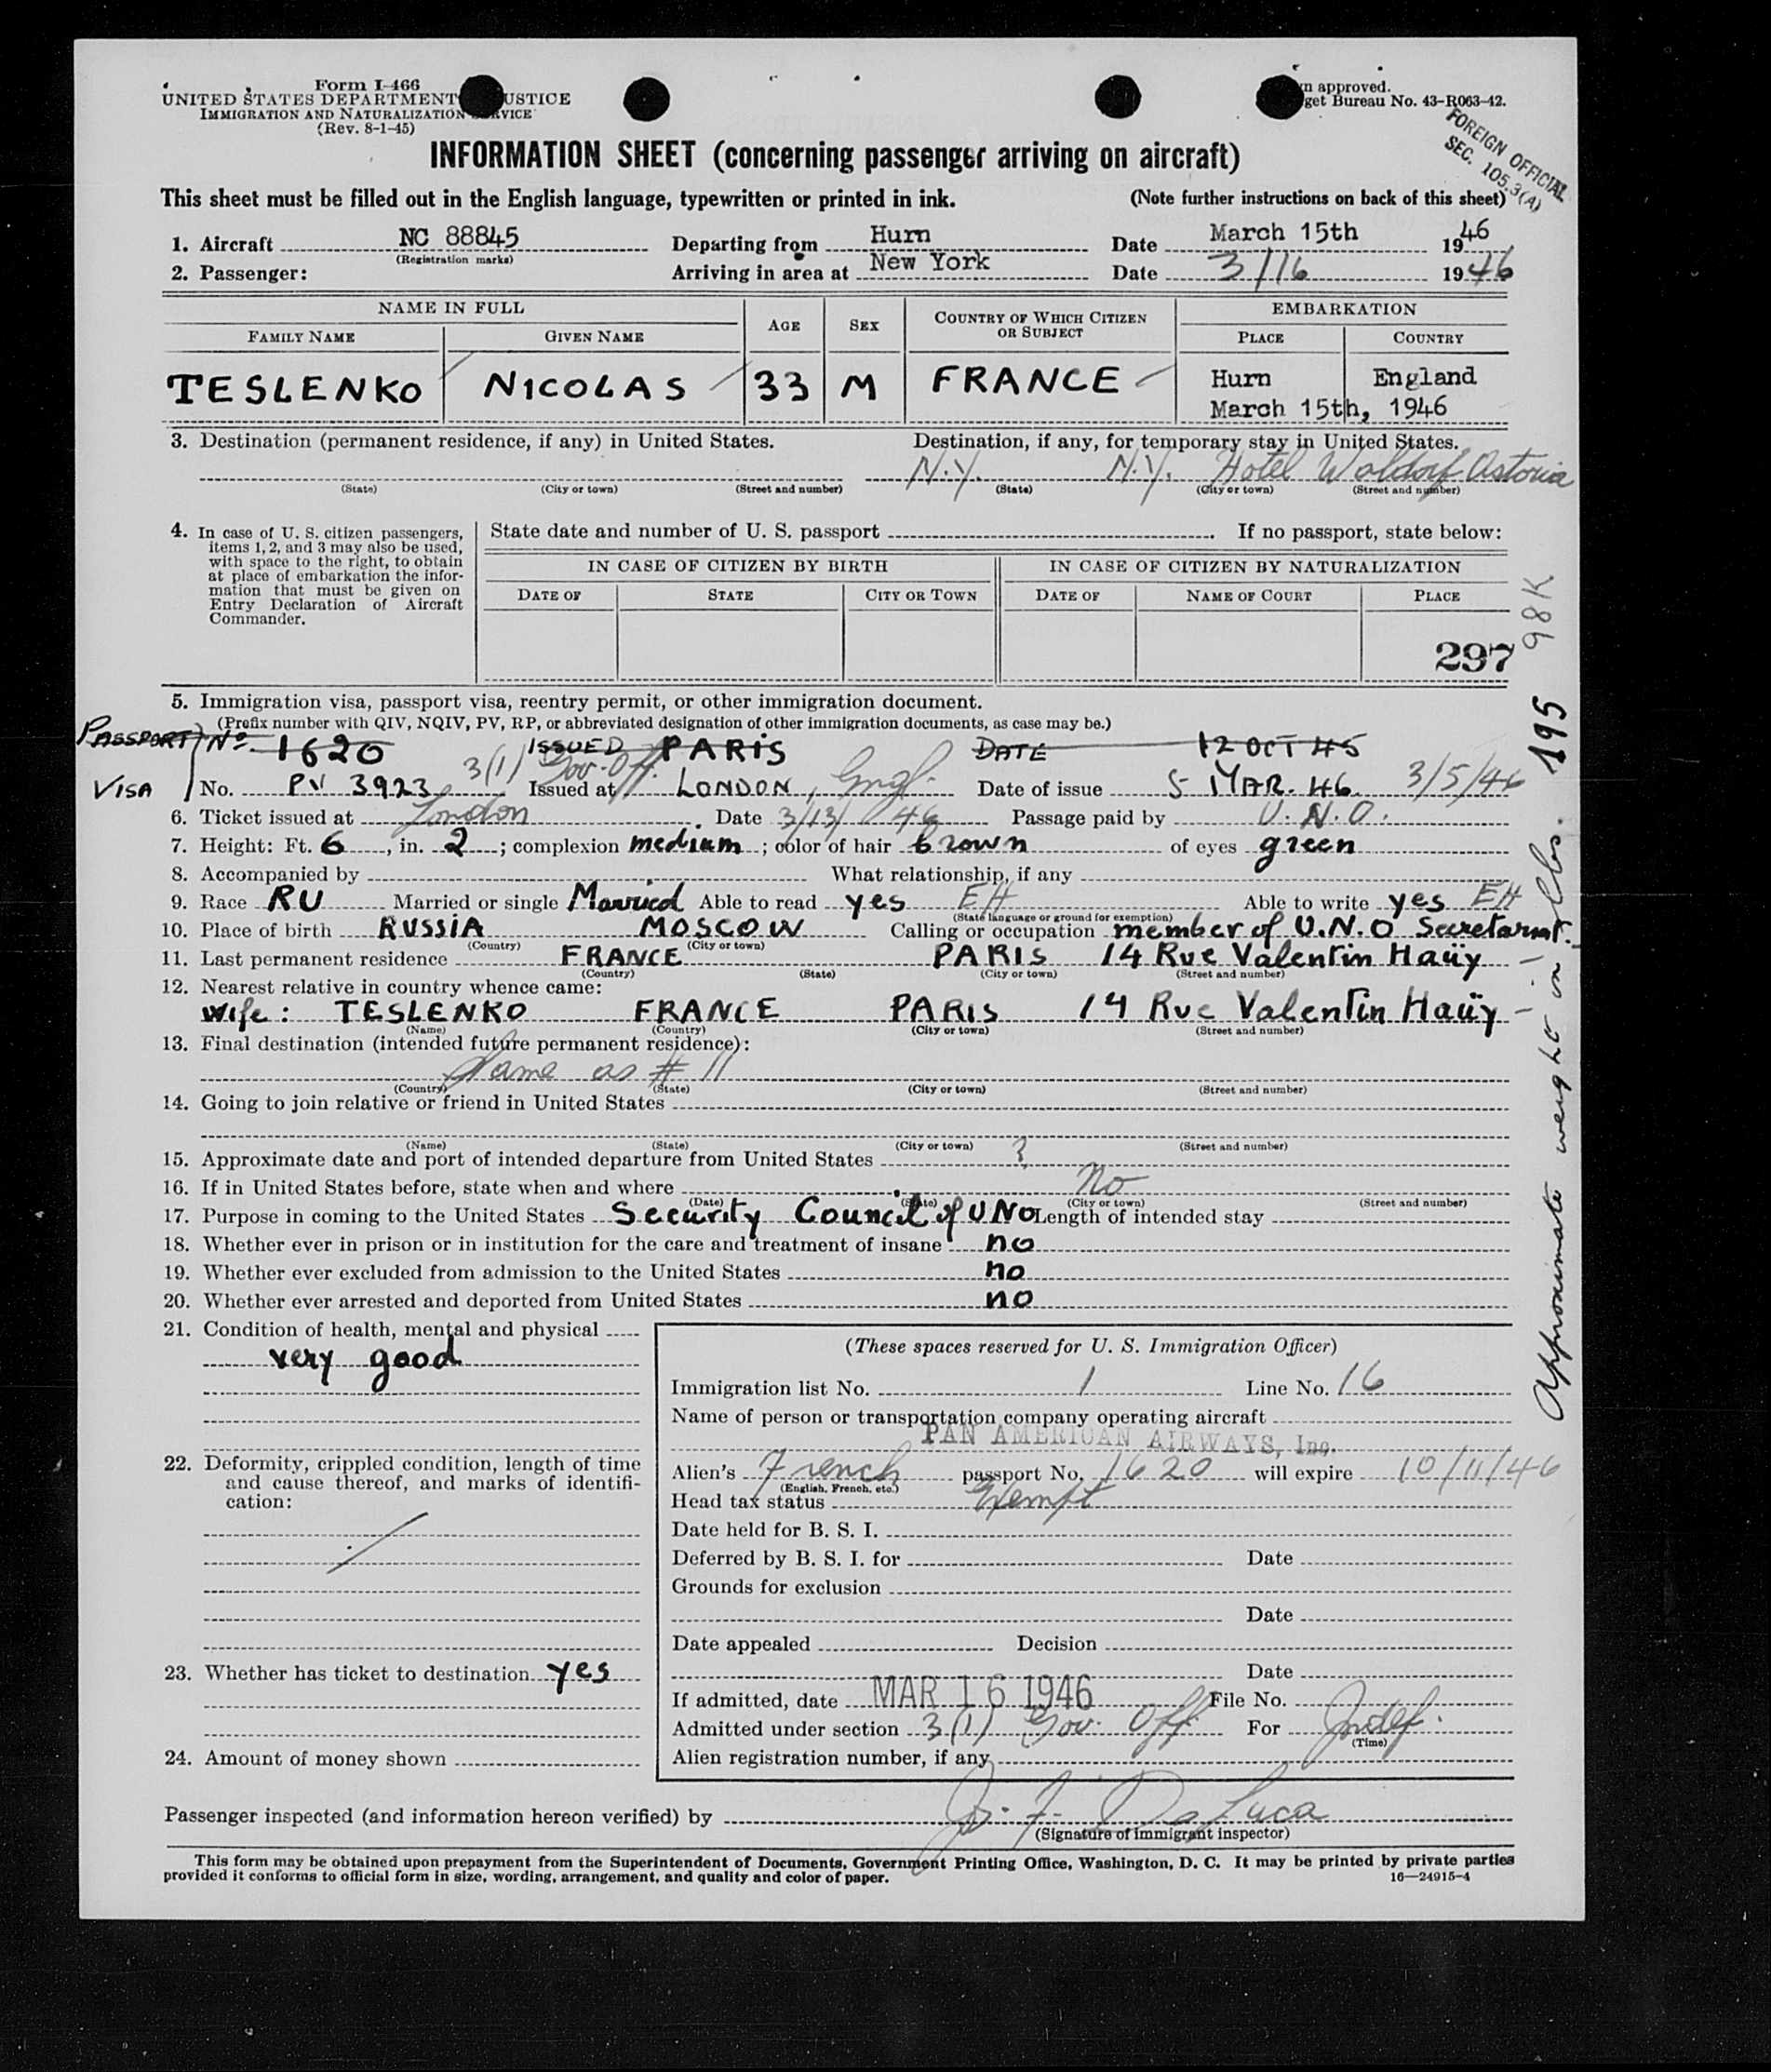 Form I-466
UNITED STATES DEPARTMENT USTICE
IMMIGRATION AND NATURALIZATION RVICE
(Rev. 8-1-45)
n approved.
get Bureau No. 43-R063-42.
FOREIGN OFFICIAL
SEC. 105.3(A)
INFORMATION SHEET (concerning passenger arriving on aircraft)
This sheet must be filled out in the English language, typewritten or printed in ink. (Note further instructions on back of this sheet)
1. Aircraft NC 88845 Departing from Hurn Date March 15th 1946
(Registration marks)
2. Passenger: Arriving in area at New York Date 3/16 1946
NAME IN FULL AGE SEX COUNTRY OF WHICH CITIZEN OR SUBJECT EMBARKATION
FAMILY NAME GIVEN NAME PLACE COUNTRY
TESLENKO NICOLAS 33 M FRANCE Hurn England
March 15th, 1946
3. Destination (permanent residence, if any) in United States. Destination, if any, for temporary stay in United States.
N.Y. N.Y. Hotel Waldorf Astoria
(State) (City or town) (Street and number) (State) (City or town) (Street and number)
4. In case of U. S. citizen passengers,
items 1, 2, and 3 may also be used,
with space to the right, to obtain
at place of embarkation the infor-
mation that must be given on
Entry Declaration of Aircraft
Commander.
State date and number of U. S. passport . If no passport, state below:
IN CASE OF CITIZEN BY BIRTH IN CASE OF CITIZEN BY NATURALIZATION
DATE OF STATE CITY OR TOWN DATE OF NAME OF COURT PLACE
297
98K
5. Immigration visa, passport visa, reentry permit, or other immigration document.
(Prefix number with QIV, NQIV, PV, RP, or abbreviated designation of other immigration documents, as case may be.)
PASSPORT No. 1620 ISSUED PARIS DATE 12 OCT 45
3(1) Gov. Off.
VISA No. PV 3923 Issued at LONDON, Engl. Date of issue 5 MAR. 46. 3/5/46
6. Ticket issued at London Date 3/13/46 Passage paid by U.N.O.
7. Height: Ft. 6, in. 2; complexion medium; color of hair brown of eyes green
8. Accompanied by What relationship, if any
9. Race RU Married or single Married Able to read yes EH Able to write yes EH
(State language or ground for exemption)
10. Place of birth RUSSIA MOSCOW Calling or occupation member of U.N.O Secretariat.
(Country) (City or town)
11. Last permanent residence FRANCE PARIS 14 Rue Valentin Haüy
(Country) (State) (City or town) (Street and number)
12. Nearest relative in country whence came:
wife: TESLENKO FRANCE PARIS 14 Rue Valentin Haüy
(Name) (Country) (City or town) (Street and number)
13. Final destination (intended future permanent residence):
Same as # 11
(Country) (State) (City or town) (Street and number)
14. Going to join relative or friend in United States
(Name) (State) (City or town) (Street and number)
15. Approximate date and port of intended departure from United States ?
16. If in United States before, state when and where No
(Date) (State) (City or town) (Street and number)
17. Purpose in coming to the United States Security Council of UNO Length of intended stay
18. Whether ever in prison or in institution for the care and treatment of insane no
19. Whether ever excluded from admission to the United States no
20. Whether ever arrested and deported from United States no
Approximate weight in lbs. 195
21. Condition of health, mental and physical
very good
22. Deformity, crippled condition, length of time
and cause thereof, and marks of identifi-
cation:
/
23. Whether has ticket to destination yes
24. Amount of money shown
(These spaces reserved for U. S. Immigration Officer)
Immigration list No. 1 Line No. 16
Name of person or transportation company operating aircraft
PAN AMERICAN AIRWAYS, Inc.
Alien's French passport No. 1620 will expire 10/11/46
(English, French, etc.)
Head tax status Exempt
Date held for B. S. I.
Deferred by B. S. I. for Date
Grounds for exclusion
Date
Date appealed Decision
Date
If admitted, date MAR 16 1946 File No.
Admitted under section 3(1) Gov. Off For Indef.
(Time)
Alien registration number, if any
Passenger inspected (and information hereon verified) by Jos. F. DeLuca
(Signature of immigrant inspector)
This form may be obtained upon prepayment from the Superintendent of Documents, Government Printing Office, Washington, D. C. It may be printed by private parties
provided it conforms to official form in size, wording, arrangement, and quality and color of paper. 16—24915-4